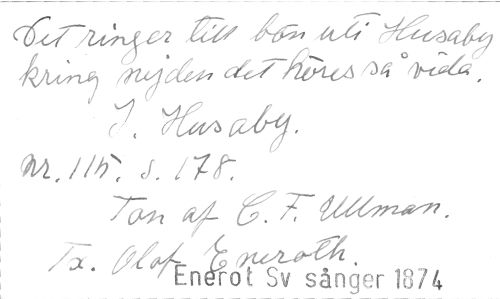 Det ringer till bön uti Husaby
kring nejden det höres så vida.
I Husaby.
Nr. 115. s. 178.
Ton af C. F. Ullman.
Tx. Olof Eneroth.
Enerot Sv sånger 1874